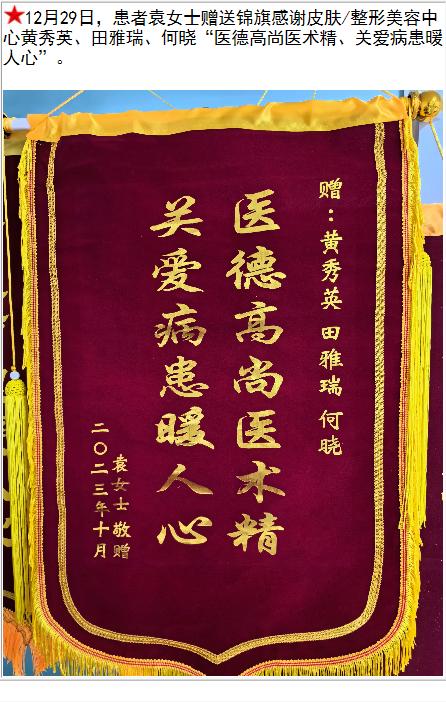 ★12月29日，患者袁女士赠送锦旗感谢皮肤/整形美容中
心黄秀英、田雅瑞、何晓“医德高尚医术精、关爱病患暖
人心”。
赠：黄秀英 田雅瑞 何晓
医德高尚医术精
关爱病患暖人心
袁女士 敬赠
二〇二三年十月